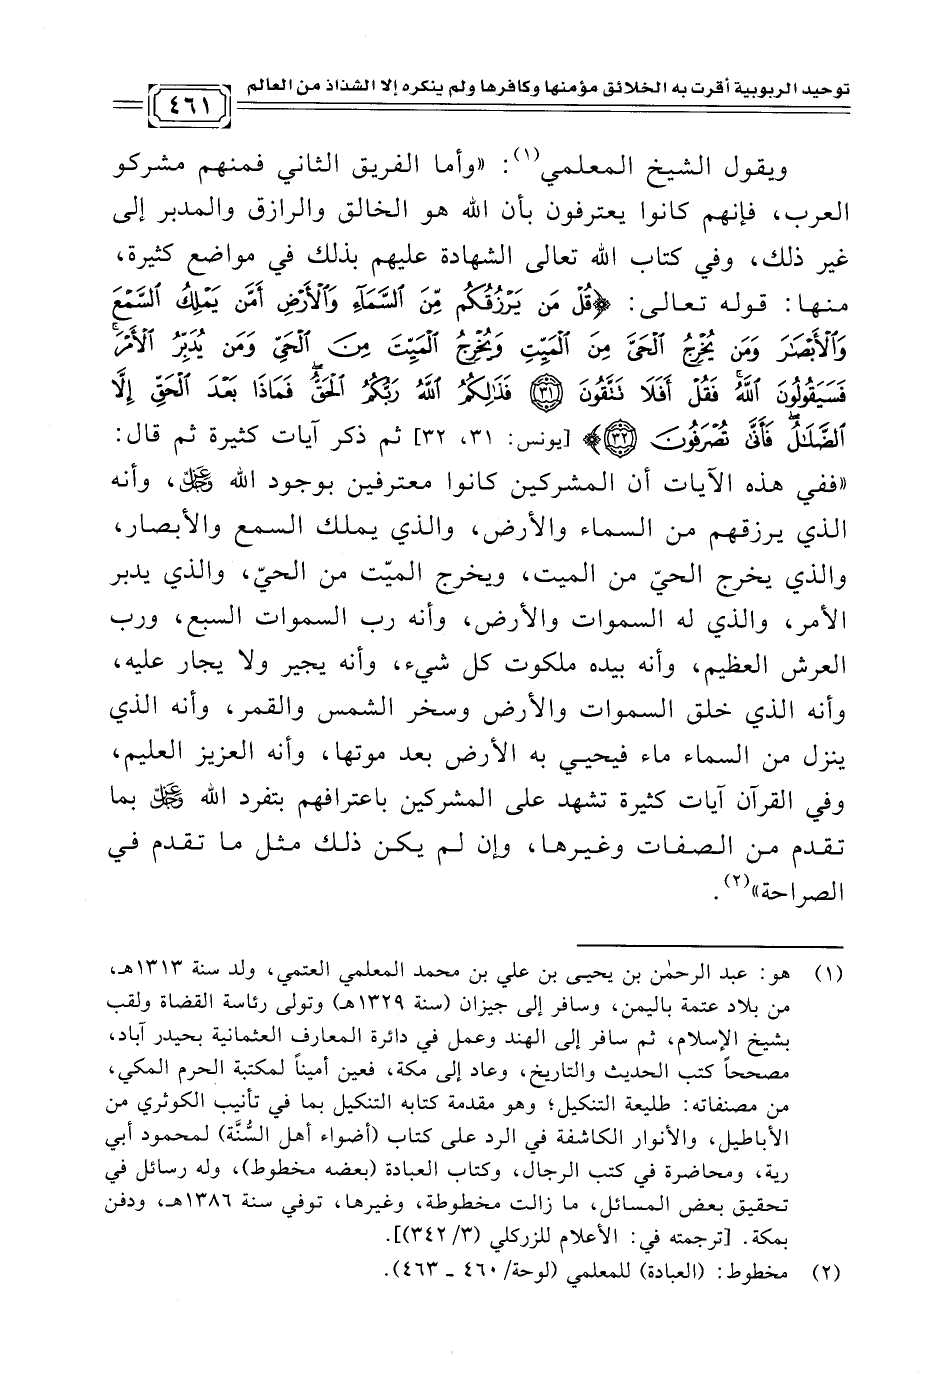 توحيد الربوبية أقرت به الخلائق مؤمنها وكافرها ولم ينكره إلا الشذاذ من العالم
٤٦١
ويقول الشيخ المعلمي(١): «وأما الفريق الثاني فمنهم مشركو
العرب، فإنهم كانوا يعترفون بأن الله هو الخالق والرازق والمدبر إلى
غير ذلك، وفي كتاب الله تعالى الشهادة عليهم بذلك في مواضع كثيرة،
منها: قوله تعالى: ﴿قُلْ مَن يَرْزُقُكُم مِّنَ ٱلسَّمَآءِ وَٱلْأَرْضِ أَمَّن يَمْلِكُ ٱلسَّمْعَ
وَٱلْأَبْصَٰرَ وَمَن يُخْرِجُ ٱلْحَىَّ مِنَ ٱلْمَيِّتِ وَيُخْرِجُ ٱلْمَيِّتَ مِنَ ٱلْحَىِّ وَمَن يُدَبِّرُ ٱلْأَمْرَ ۚ
فَسَيَقُولُونَ ٱللَّهُ ۚ فَقُلْ أَفَلَا تَتَّقُونَ ﴿٣١﴾ فَذَٰلِكُمُ ٱللَّهُ رَبُّكُمُ ٱلْحَقُّ ۖ فَمَاذَا بَعْدَ ٱلْحَقِّ إِلَّا
ٱلضَّلَٰلُ ۖ فَأَنَّىٰ تُصْرَفُونَ ﴿٣٢﴾﴾ [يونس: ٣١، ٣٢] ثم ذكر آيات كثيرة ثم قال:
«ففي هذه الآيات أن المشركين كانوا معترفين بوجود الله ﷻ، وأنه
الذي يرزقهم من السماء والأرض، والذي يملك السمع والأبصار،
والذي يخرج الحيّ من الميت، ويخرج الميّت من الحيّ، والذي يدبر
الأمر، والذي له السموات والأرض، وأنه رب السموات السبع، ورب
العرش العظيم، وأنه بيده ملكوت كل شيء، وأنه يجير ولا يجار عليه،
وأنه الذي خلق السموات والأرض وسخر الشمس والقمر، وأنه الذي
ينزل من السماء ماء فيحيي به الأرض بعد موتها، وأنه العزيز العليم،
وفي القرآن آيات كثيرة تشهد على المشركين باعترافهم بتفرد الله ﷻ بما
تقدم من الصفات وغيرها، وإن لم يكن ذلك مثل ما تقدم في
الصراحة»(٢).
(١) هو: عبد الرحمٰن بن يحيى بن علي بن محمد المعلمي العتمي، ولد سنة ١٣١٣هـ،
من بلاد عتمة باليمن، وسافر إلى جيزان (سنة ١٣٢٩هـ) وتولى رئاسة القضاة ولقب
بشيخ الإسلام، ثم سافر إلى الهند وعمل في دائرة المعارف العثمانية بحيدر آباد،
مصححاً كتب الحديث والتاريخ، وعاد إلى مكة، فعين أميناً لمكتبة الحرم المكي،
من مصنفاته: طليعة التنكيل؛ وهو مقدمة كتابه التنكيل بما في تأنيب الكوثري من
الأباطيل، والأنوار الكاشفة في الرد على كتاب (أضواء أهل السُّنَّة) لمحمود أبي
رية، ومحاضرة في كتب الرجال، وكتاب العبادة (بعضه مخطوط)، وله رسائل في
تحقيق بعض المسائل، ما زالت مخطوطة، وغيرها، توفي سنة ١٣٨٦هـ، ودفن
بمكة. [ترجمته في: الأعلام للزركلي (٣/ ٣٤٢)].
(٢) مخطوط: (العبادة) للمعلمي (لوحة/ ٤٦٠ ـ ٤٦٣).